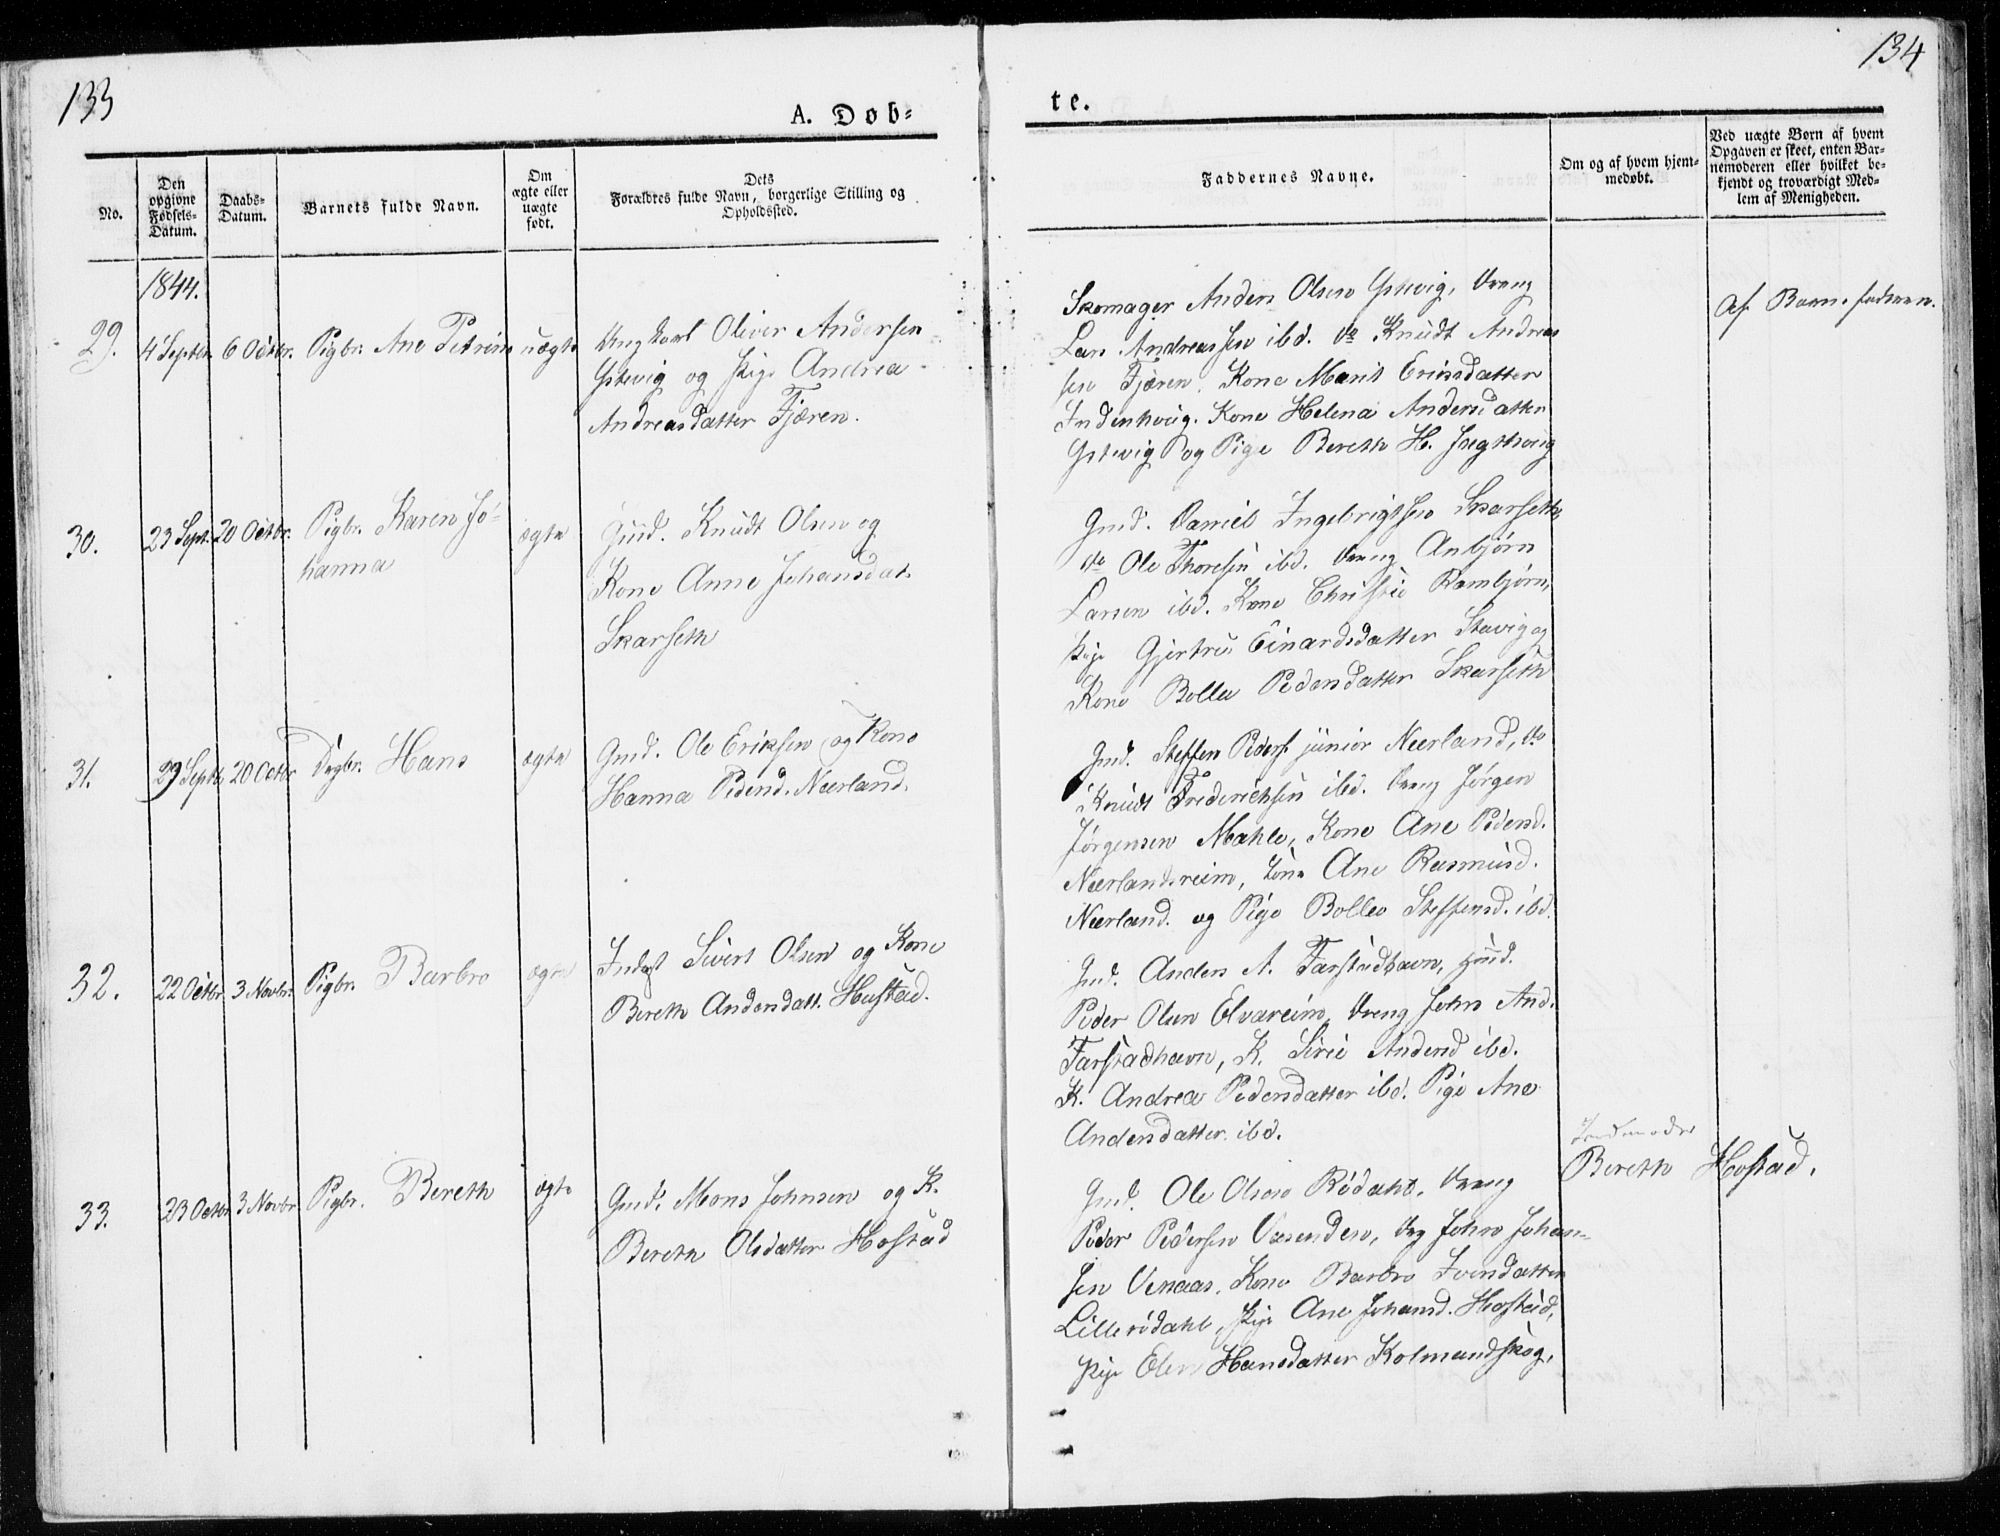 133
134
A. Døb-
te.
No.
Den opgivne Fødsels-Datum.
Daabs-Datum.
Barnets fulde Navn.
Om ægte eller uægte født.
Dets Forældres fulde Navn, borgerlige Stilling og Opholdssted.
Faddernes Navne.
Om og af hvem hjemmedøbt.
Ved uægte Børn af hvem Opgaven er skeet, enten Barnemoderen eller hvilket bekjendt og troværdigt Medlem af Menigheden.
1844.
29. 4 Septbr. 6 Octbr. Pigbr. Ane Petrine uægte
Ungkarl Oliver Andersen
Ystevig og Pige Andrea
Andreasdatter Fjæren.
Skomager Anders Olsen Ystevig, Dreng
Lars Andreassen ibd. do Knudt Andreas
sen Fjæren. Kone Marit Eriksdatter
Indenhvig. Kone Helena Andersdatter
Ystevig og Pige Bereth H.
Af Barnefaderen.
30. 23 Sept. 20 Octbr. Pigbr. Karen Jo-
hanna
ægte
Gmd. Knudt Olsen og
Kone Anne Johansdat.
Skarseth
Gmd. Daniel Ingebrigtsen Skarseth
do Ole Thoresen ibd. Dreng Anbjørn
Larsen ibd. Kone Christie Rambjørn,
Pige Gjertru Einardsdatter Stavig og
Kone Bolla Pedersdatter Skarseth
31. 29 Septb. 20 Octbr Dngbr. Hans ægte
Gmd. Ole Eriksen og Kone
Hanna Pedersd. Nerland.
Gmd. Steffen Peders. junior Nerland, do
Knudt Frederichsen ibd. Dreng Jørgen
Jørgensen Mahle, Kone Ane Pedersd.
Nerlandsreim, Kone Ane Rasmusd.
Nerland. og Pige Bolleo Steffensd. ibd.
32. 22 Octbr. 3 Novbr. Pigbr. Barbro ægte
Inderst Sivert Olsen og Kone
Bereth Andersdatt. Hustad.
Gmd. Anders A. Farstadhavn, Gmd.
Peder Olsen Elvareim, Dreng John And.
Farstadhavn, K. Sirie Andersd ibd.
K. Andrea Pedersdatter ibd. Pige Ane
Andersdatter ibd.
33. 23 Octbr. 3 Novbr. Pigbr. Bereth ægte
Gmd. Mons Johnsen og K.
Bereth Olsdatter Hostad
Gmd. Ole Olsen Rødahl, Dreng
Peder Pedersen Vasenden, Drg John Johan-
sen Venaas. Kone Barbro Iversdatter
Lillerødahl, Pige Ane Johansd. Hostad,
Pige Elen Hansdatter Kolmandskog.
Jordmoder
Bereth Hostad.